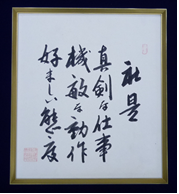 社是
真剣な仕事
機敏な動作
好ましい態度